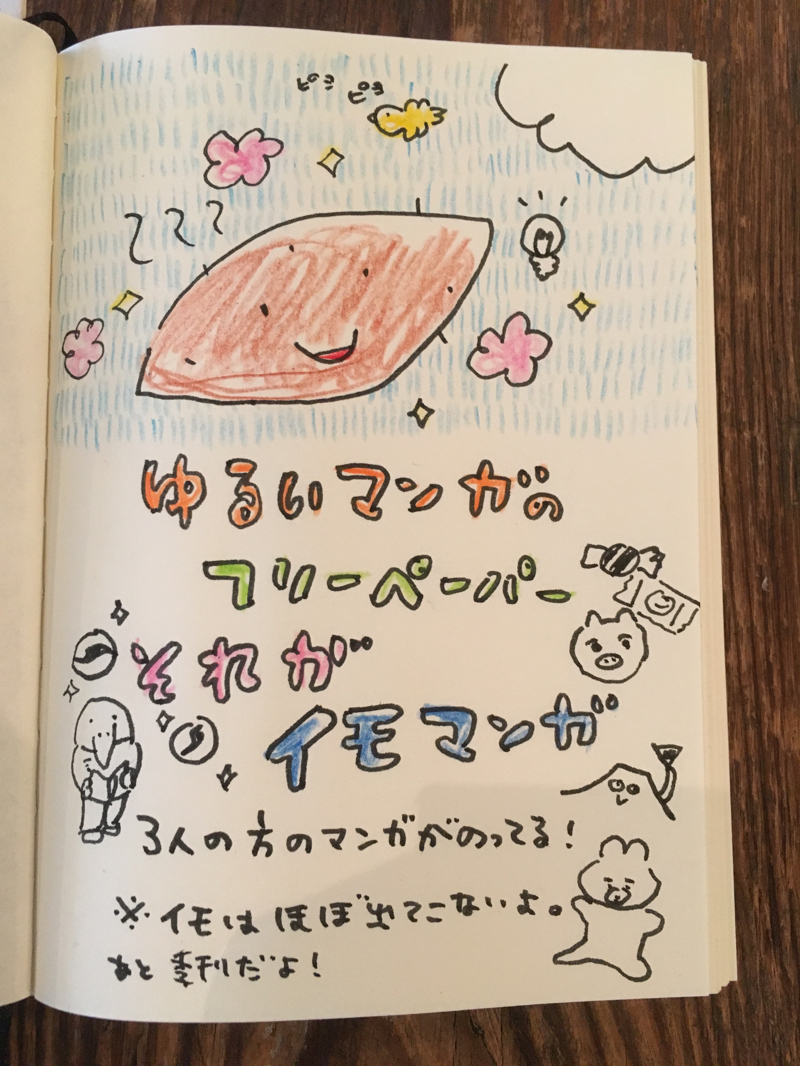 ピヨ ピヨ
ゆるいマンガの
フリーペーパー
それが
イモマンガ
3人の方のマンガがのってる!
※イモはほぼ出てこないよ。
あと季刊だよ!